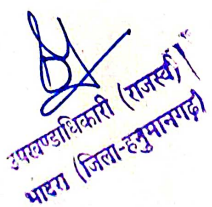 उपखण्डाधिकारी (राजस्व)
भादरा (जिला-हनुमानगढ़)